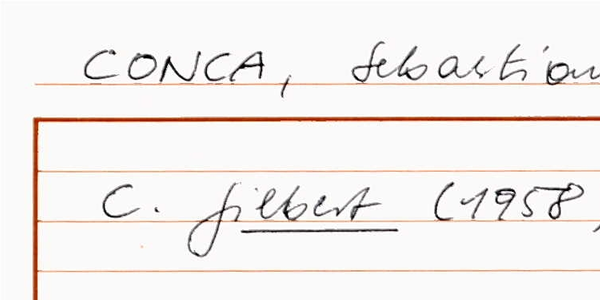 CONCA, Sebastian
C. Gilbert (1958,